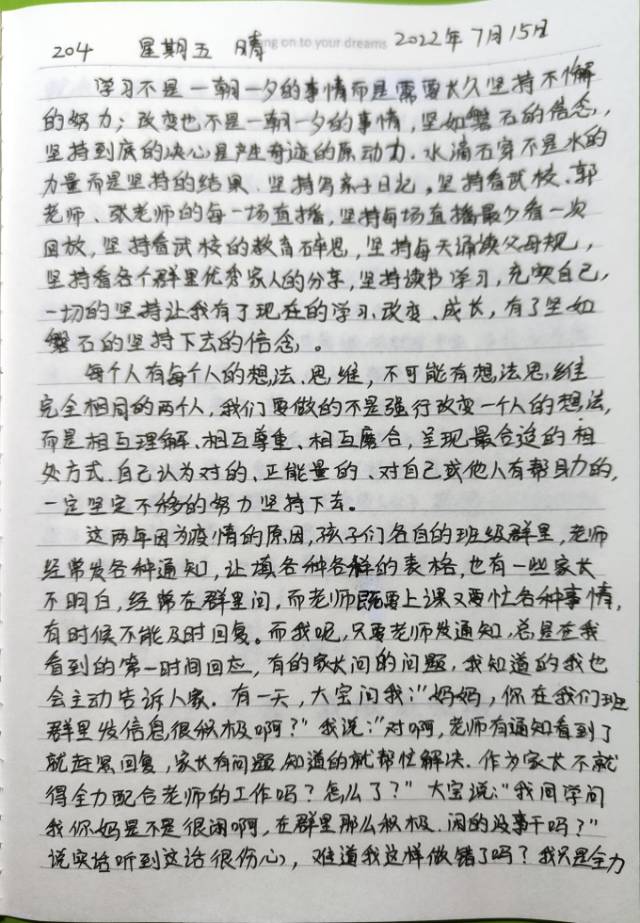 204 星期五 晴 ng on to your dreams 2022年7月15日
学习不是一朝一夕的事情而是需要长久坚持不懈
的努力；改变也不是一朝一夕的事情，坚如磐石的信念，
坚持到底的决心是产生奇迹的原动力．水滴石穿不是水的
力量而是坚持的结果．坚持写亲子日记，坚持看武校、郭
老师、张老师的每一场直播，坚持每场直播最少看一次
回放，坚持看武校的教育碎思，坚持每天诵读父母规，
坚持看各个群里优秀家人的分享，坚持读书学习，充实自己，
一切的坚持让我有了现在的学习、改变、成长，有了坚如
磐石的坚持下去的信念。
每个人有每个人的想法、思维，不可能有想法思维
完全相同的两个人，我们要做的不是强行改变一个人的想法，
而是相互理解、相互尊重、相互磨合，呈现最合适的相
处方式．自己认为对的、正能量的、对自己或他人有帮助的，
一定坚定不移的努力坚持下去。
这两年因为疫情的原因，孩子们各自的班级群里，老师
经常发各种通知，让填各种各样的表格，也有一些家长
不明白，经常在群里问，而老师既要上课又要忙各种事情，
有时候不能及时回复。而我呢，只要老师发通知，总是在我
看到的第一时间回应，有的家长问的问题，我知道的我也
会主动告诉人家．有一天，大宝问我：“妈妈，你在我们班
群里发信息很积极啊？”我说：“对啊，老师有通知看到了
就赶紧回复，家长有问题知道的就帮忙解决．作为家长不就
得全力配合老师的工作吗？怎么了？”大宝说：“我同学问
我你妈是不是很闲啊，在群里那么积极．闲的没事干吗？”
说实话听到这话很伤心，难道我这样做错了吗？我只是全力